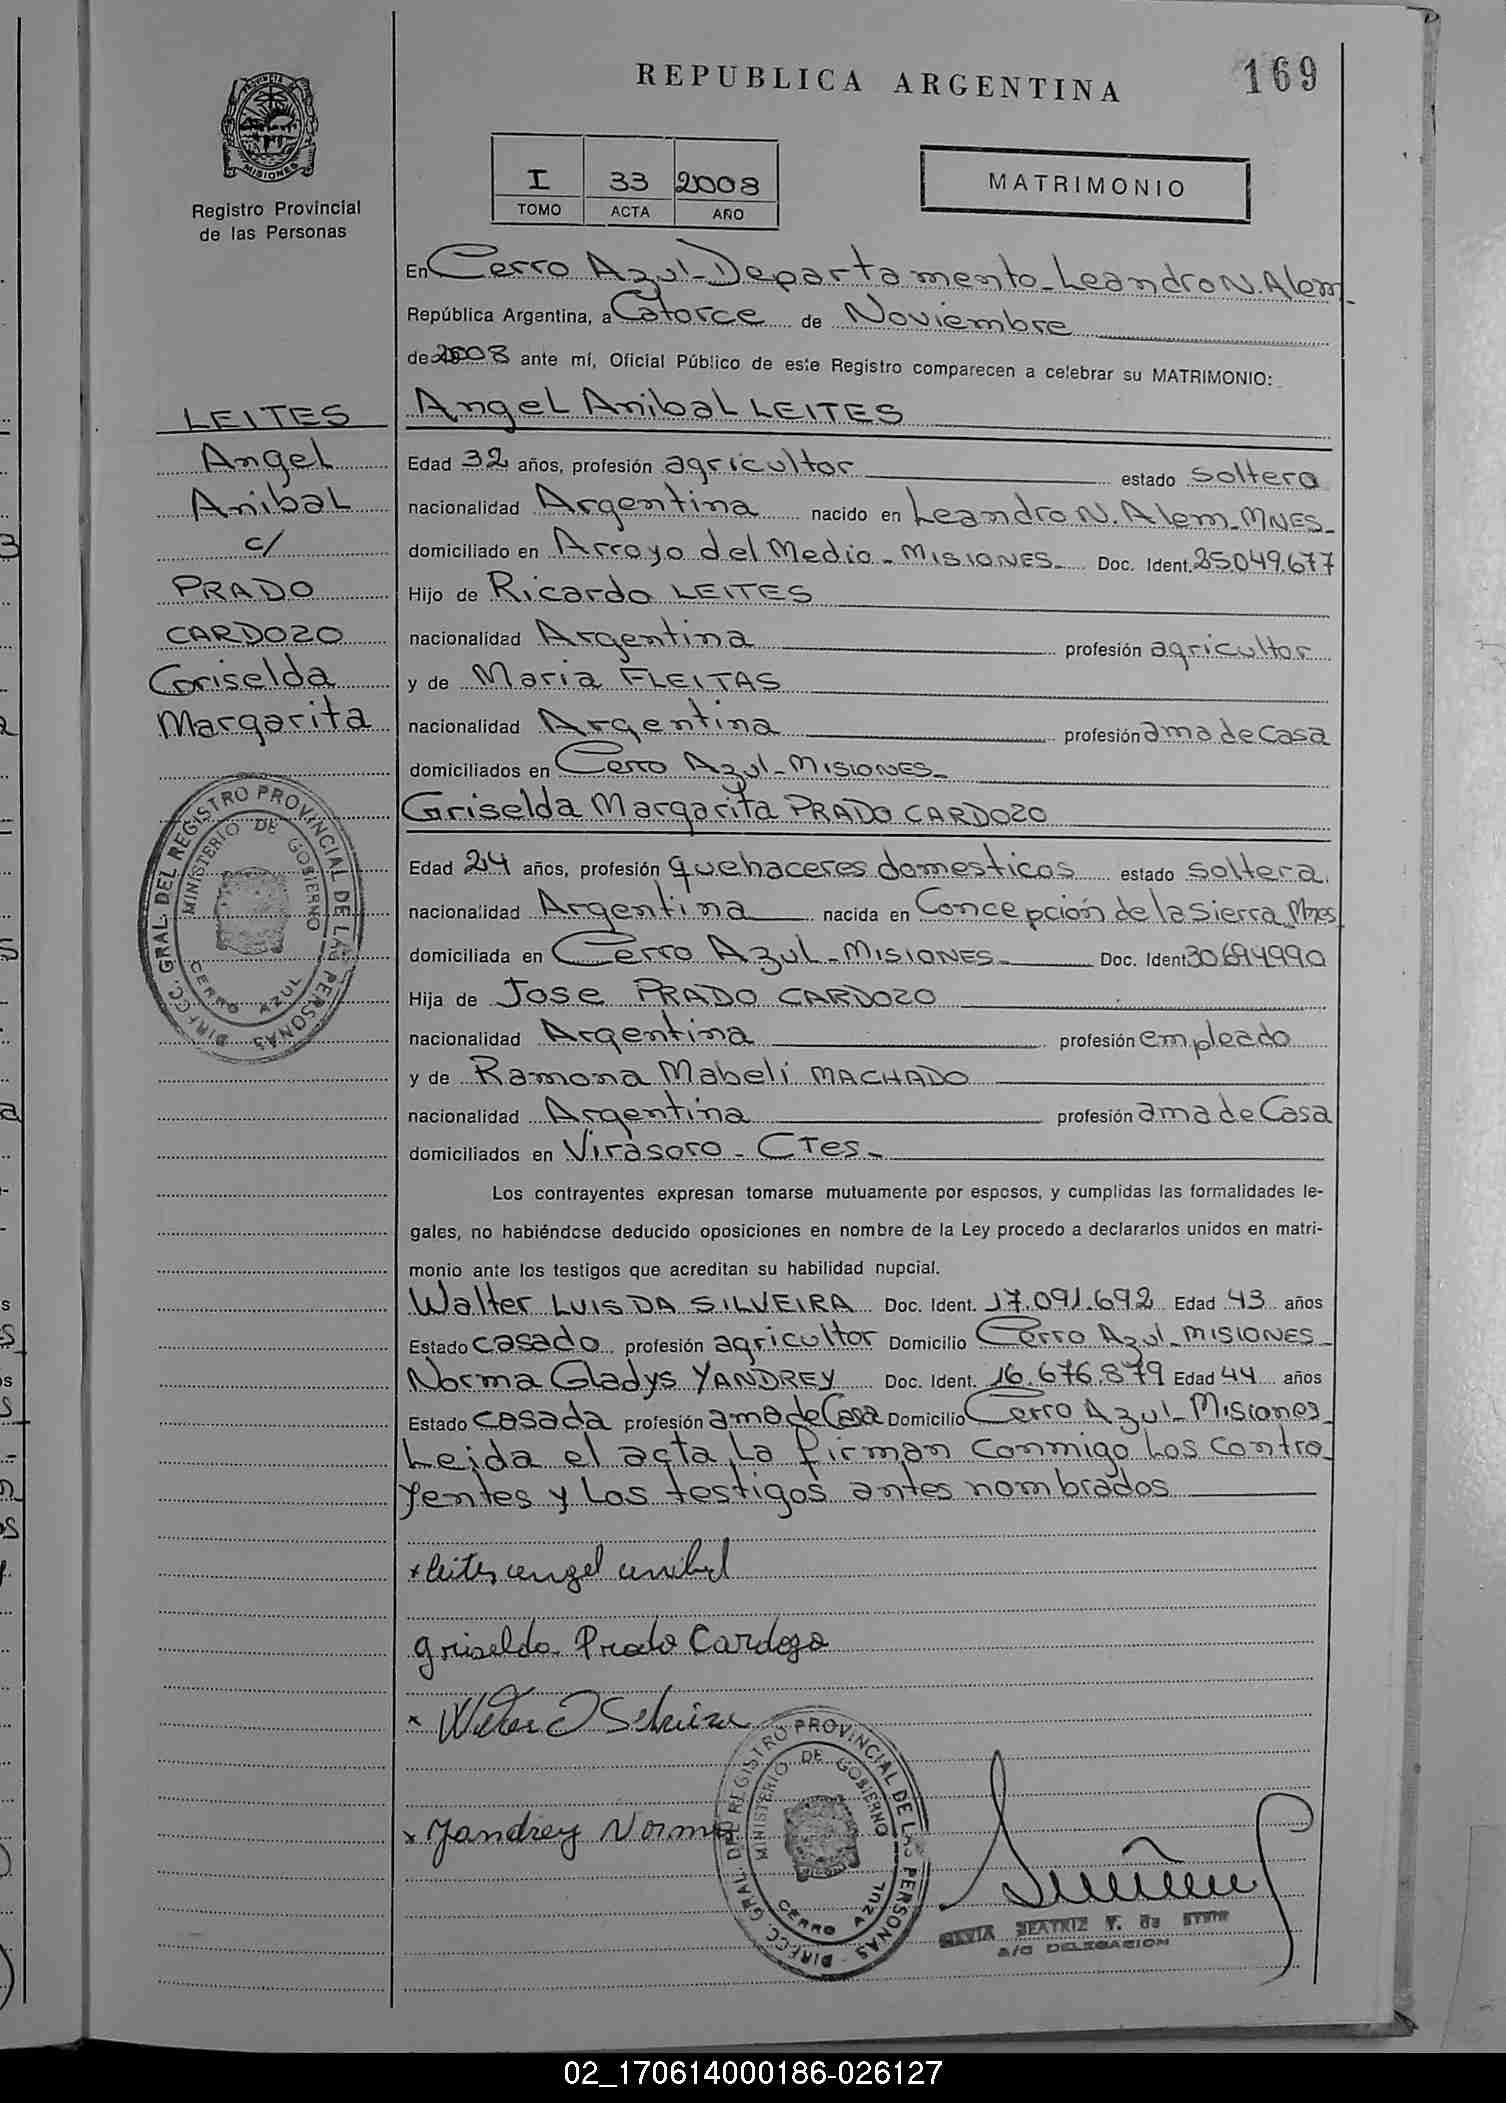 REPUBLICA ARGENTINA
169
PROVINCIA DE MISIONES
Registro Provincial
de las Personas
I 33 2008
TOMO ACTA AÑO
MATRIMONIO
En Cerro Azul-Departamento-Leandro N. Alem-
República Argentina, a Catorce de Noviembre
de 2008 ante mí, Oficial Público de este Registro comparecen a celebrar su MATRIMONIO:
LEITES
Angel
Anibal
c/
PRADO
CARDOZO
Griselda
Margarita
Angel Anibal LEITES
Edad 32 años, profesión agricultor estado soltero
nacionalidad Argentina nacido en Leandro N. Alem-MNES-
domiciliado en Arroyo del Medio-MISIONES- Doc. Ident. 25.049.677
Hijo de Ricardo LEITES
nacionalidad Argentina profesión agricultor
y de Maria FLEITAS
nacionalidad Argentina profesión ama de Casa
domiciliados en Cerro Azul-MISIONES-
Griselda Margarita PRADO CARDOZO
Edad 24 años, profesión quehaceres domesticos estado soltera
nacionalidad Argentina nacida en Concepción de la Sierra Mnes
domiciliada en Cerro Azul-MISIONES- Doc. Ident 30694990
Hija de Jose PRADO CARDOZO
nacionalidad Argentina profesión empleado
y de Ramona Mabeli MACHADO
nacionalidad Argentina profesión ama de Casa
domiciliados en Virasoro-CTes-
Los contrayentes expresan tomarse mutuamente por esposos, y cumplidas las formalidades le-
gales, no habiéndose deducido oposiciones en nombre de la Ley procedo a declararlos unidos en matri-
monio ante los testigos que acreditan su habilidad nupcial.
Walter LUIS DA SILVEIRA Doc. Ident. 17.091.692 Edad 43 años
Estado casado profesión agricultor Domicilio Cerro Azul-MISIONES-
Norma Gladys YANDREY Doc. Ident. 16.676.879 Edad 44 años
Estado casada profesión ama de Casa Domicilio Cerro Azul-Misiones-
Leida el acta, la firman conmigo los contra-
yentes y los testigos antes nombrados
x leites angel anibal
griselda Prado Cardozo
x Walter D Silveira
x Yandrey Norma
DIRECC. GRAL. DEL REGISTRO PROVINCIAL DE LAS PERSONAS
MINISTERIO DE GOBIERNO
CERRO AZUL
DIRECC. GRAL. DEL REGISTRO PROVINCIAL DE LAS PERSONAS
MINISTERIO DE GOBIERNO
CERRO AZUL
BEATRIZ V. de
A/C DELEGACION
02_170614000186-026127